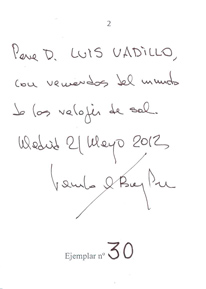 2
Para D. LUIS VADILLO,
con recuerdos del mundo
de los relojes de sol.
Madrid 21 Mayo 2012
Ejemplar nº 30